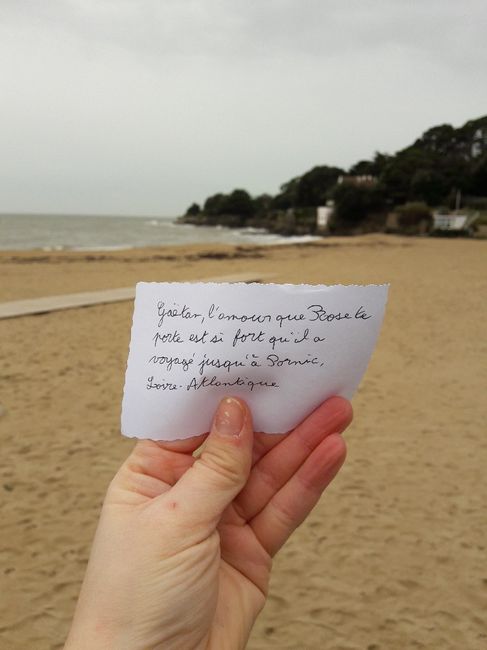 Gaëtan, l'amour que Rose te
porte est si fort qu'il a
voyagé jusqu'à Pornic,
Loire-Atlantique